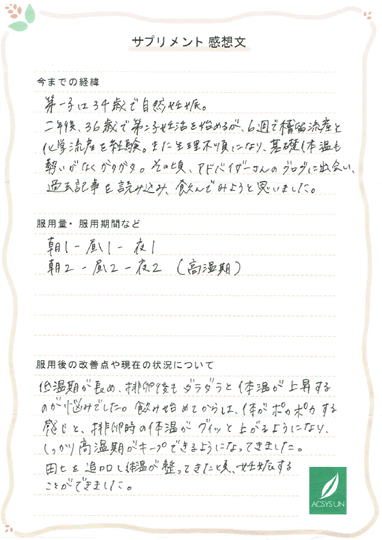 サプリメント 感想文
今までの経緯
第一子は34歳で自然妊娠。
二年後、36歳で第二子妊活を始めるが、6週で稽留流産と
化学流産を経験。また生理不順になり、基礎体温も
勢いがなくガタガタ。その頃、アドバイザーさんのブログに出会い、
過去記事を読み込み、飲んでみようと思いました。
服用量・服用期間など
朝1-昼1-夜1
朝2-昼2-夜2 (高温期)
服用後の改善点や現在の状況について
低温期が長め、排卵後もダラダラと体温が上昇する
のが悩みでした。飲み始めてからは、体がポカポカする
感じと、排卵時の体温がグイッと上がるようになり、
しっかり高温期がキープできるようになってきました。
田七を追加し体温が整ってきた頃、妊娠する
ことができました。
ACSYS UN